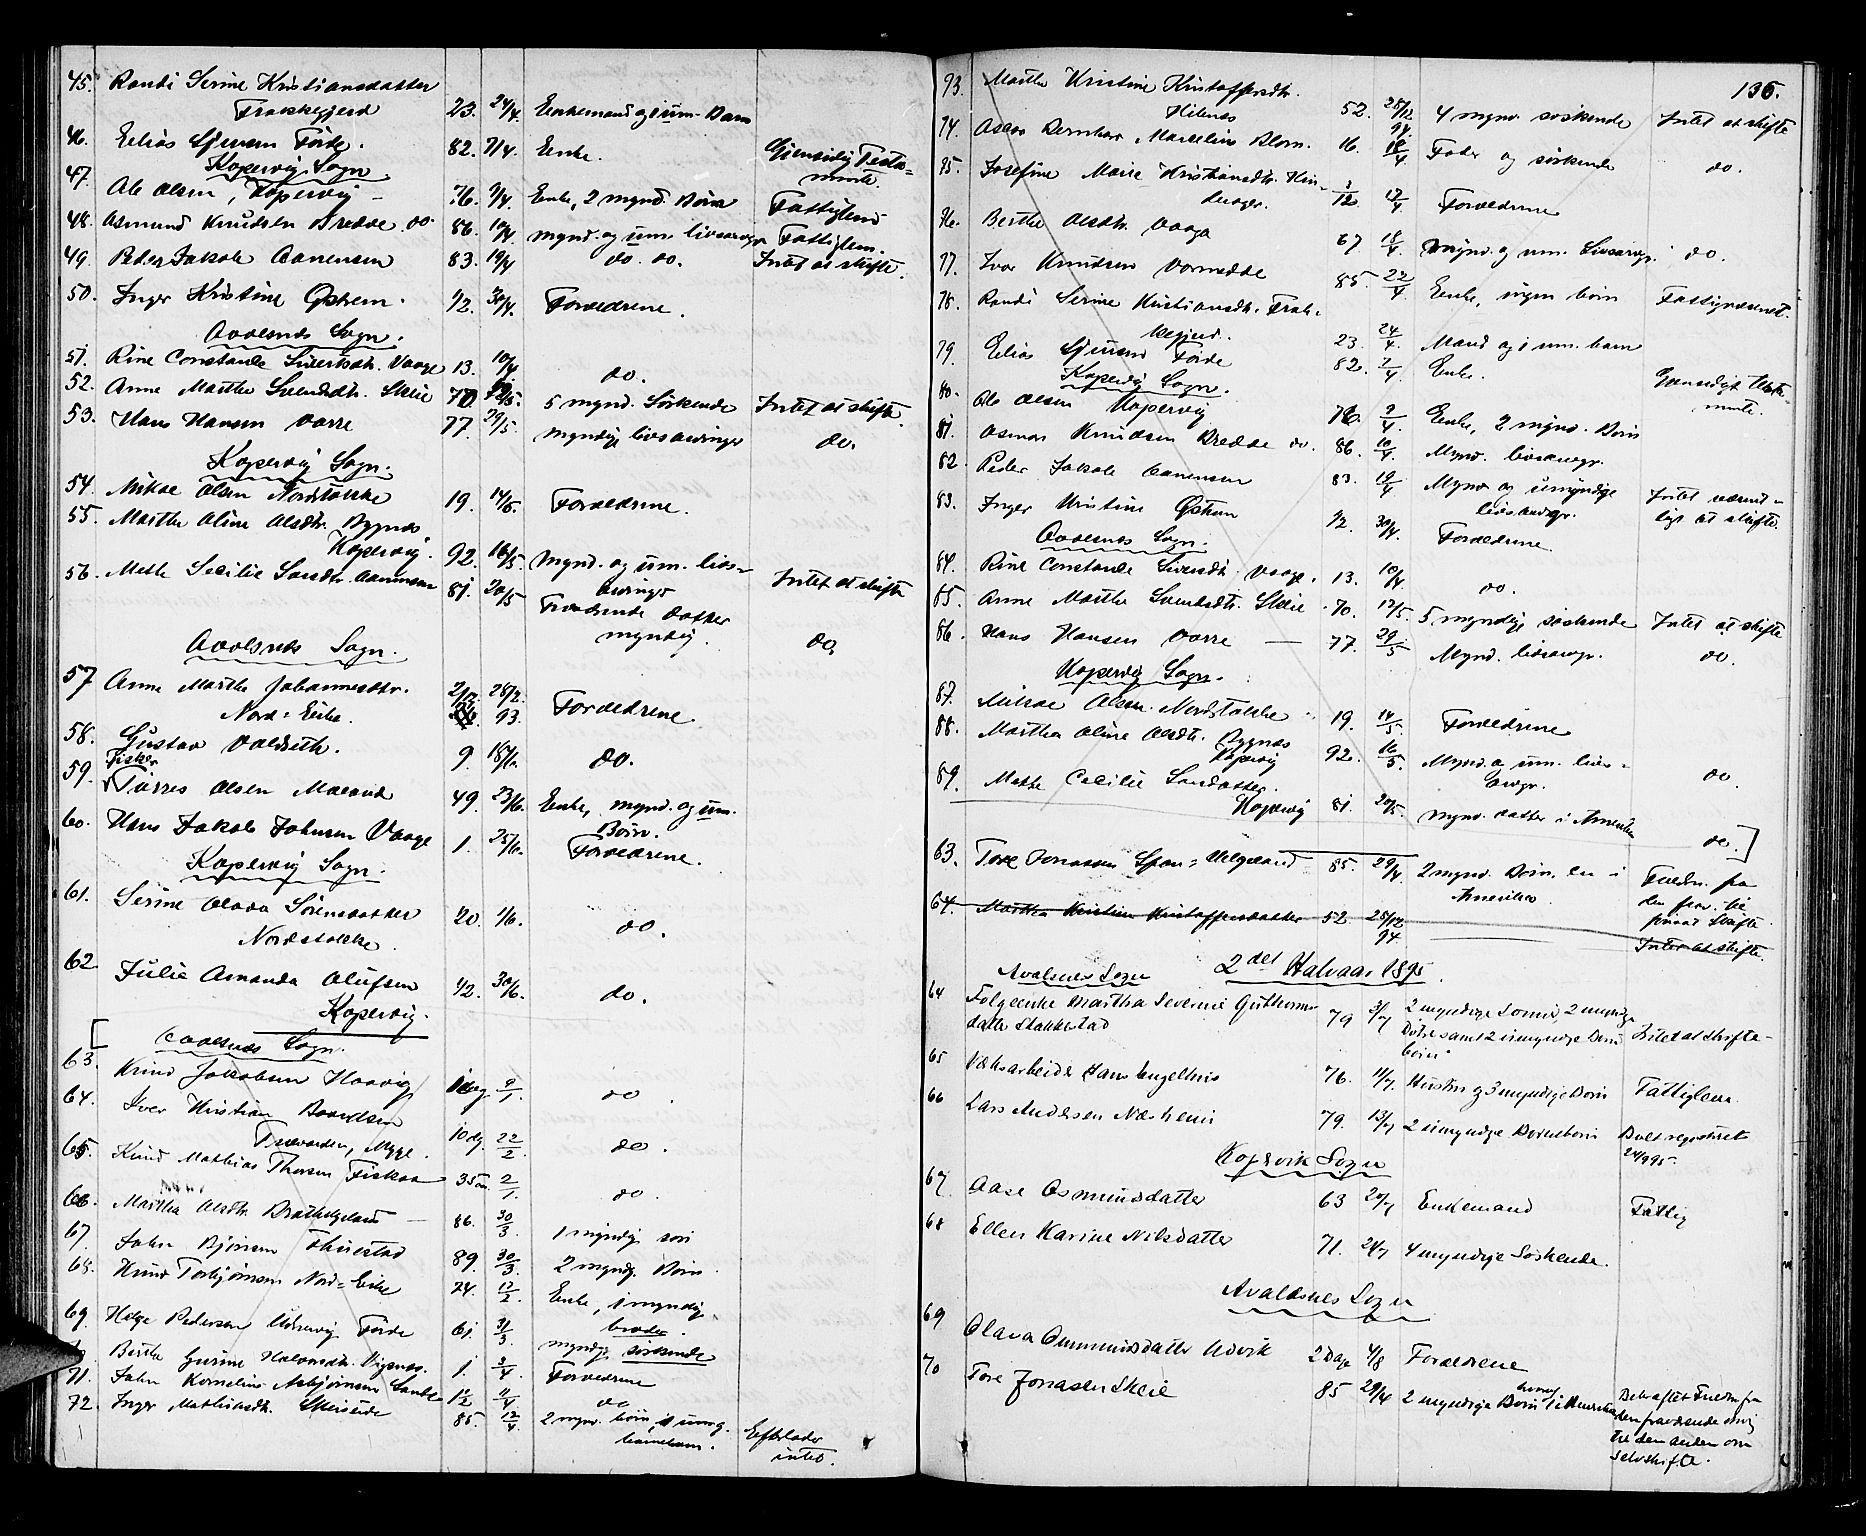 45. Randi Serine Kristiansdatter
Frakkegjerd 23. 24/4. Enkemand og 1 um. Barn
46. Elias Sjursen Förde. 82. 7/4. Enke. Gjensidig Testa-
mente.
Kopervig Sogn
47. Ole Olsen, Kopervig - 76. 9/4. Enke, 2 mynd. Börn Fattiglem
48. Osmund Knudsen Bredde do 86. 10/4 mynd. og um. livsarvgr Fattiglem.
49. Peder Jakob Aanensen 83. 19/4 do. do. Intet at skifte.
50. Inger Kristine Östrem. 1/2. 30/4. Forældrene.
Avalsnes Sogn.
51. Rine Constande Sivertsdtr. Vaage 13. 10/4 do.
52. Anne Marthe Svendsdtr. Skeie 70. 12/5. 5 mynd. Söskende Intet at skifte.
53. Hans Hansen Vorre 77. 29/5. myndige livsarvinger do.
Kopervig Sogn.
54. Mikal Olsen Nordstokke 19. 14/5. Forældrene.
55. Marthe Oline Olsdtr. Bygnæs
Kopervig. 92. 16/5. mynd. og um. livs-
arvinger Intet at skifte
56. Mette Secilie Larsdtr. Aanensen 81. 20/5 Fraværende datter
myndig. do.
Avalsnes Sogn.
57 Anne Marthe Johannesdtr. 2/12. 28/2.
Nord-Eike. 93. Forældrene.
58. Gustav Valdseth. 9. 18/6. do.
Fisker
59. Törres Olsen Maeland 49. 23/6. Enke, mynd. og um.
Börn.
60. Hans Jakob Johnsen Vaage 1. 25/6. Forældrene.
Kopervig Sogn.
61. Serine Olava Sörensdatter
Nordstokke. 20. 1/6. do.
62. Julie Amanda Olufsen
Kopervig. 1/2. 30/6. do.
[ Avalsnes Sogn.
63. Knud Jakobsen Haavig 1 dag 9/1. do.
64. Iver Kristian Baardsen
Trævarden, Mygge. 10 dg. 22/2. do.
65. Knud Mathias Thorsen Fiskaa 35 2/1. do.
66. Martha Olsdtr. Brathelgeland 86. 30/3. 1 myndig sön
67. John Björnsen Thuestad 89. 30/3. 2 myndg. Börn.
68. Knud Torbjörnsen Nord-Eike 24. 12/2. Enke, 1 myndig
broder.
69. Helge Pedersen Förde 61. 31/3. myndg. söskende
Berthe Gurine Halvorsdtr. Vigsnes. 1. 3/4. Forældrene
71. John Kornelius Asbjörnsen Sande 10/12 11/4 do
72. Inger Mathiasdtr. Skeiseide 85. 12/4. 2 mynd. börn, 1 umg.
barnebarn. Efterlader
intet.
136.
73. Marthe Kristine Kristoffersdtr.
Hilnes 52. 28/12 94. 4 mynd. söskende Intet at skifte
74. Oskar Bernhar Marselius Blom. 16. 18/4. Fader og söskende do.
75. Josefine Marie Kristiansdtr. Hin-
derager. 3/12. 17/4. Forældrene
76. Berthe Olsdtr. Vaaga 67. 18/4 mynd. og um. Livsarvgr. do.
77. Ivar Knudsen Vormedde 85. 22/4. Enke, ingen börn Fattigvæsenet.
78. Randi Serine Kristiansdtr. Frak-
kegjerd. 23. 24/4. Mand og 1 um. barn
79. Elias Sjursen Förde 82. 7/4. Enke. Gjensidigt Testa-
mente.
Kopervig Sogn.
80. Ole Olsen Kopervig 76. 9/4. Enke, 2 mynd. Börn
81. Osmon Knudsen Bredde do. 86. 10/4. Mynd. livsarvgr.
82. Peder Jakob Aanensen 83. 19/4 Mynd. og umyndige
livsarvgr. Intet væsent-
ligt at skifte.
83. Inger Kristine Östrem 1/2. 30/4. Forældrene
Avalsnes Sogn.
84. Rine Constande Sivertsdtr. Vaage. 13. 10/4. do.
85. Anne Marthe Svendsdtr. Skeie. 70. 12/5. 5 myndige söskende Intet at skifte
86. Hans Hansen Vorre — 77. 29/5 Mynd. livsarvgr. do.
Kopervig Sogn.
87. Mikal Olsen Nordstokke 19. 14/5. Forældrene
88. Martha Oline Olsdtr. Bygnæs
Kopervig 92. 16/5. Mynd. o um. livs-
arvgr. do.
89. Mette Cecilie Larsdatter.
Kopervig 81. 20/5. mynd. datter i Amerika do. ]
63. Tore Jonassen Skeie, Helgeland 85. 29/4. 2 mynd. Börn, en i
Amerika Fuldm. fra
den frav. til
privat Skifte
64. Martha Kristine Kristoffersdatter 52 28/12 94. Intet at skifte.
2det Halvaar 1895.
Avalsnes Sogn
64 Folgeenke Martha Severine Guttorms-
datter Stakkestad 79 3/7 2 myndige Sønner, 2 myndige
Døtre samt 2 umyndige Børne-
børn Intet at skifte-
65 Vækarbeider Hans Engelhus 76. 11/7. Hustru og 3 myndige Børn Fattiglem.
66 Lars Andersen Næsheim 79. 13/7 2 umyndige Børnebørn Boet registreret
24/9 95.
Kopervik Sogn
67 Aase Osmundsdatter 63 20/7 Enkemand Fattig
68 Ellen Karine Nilsdatter 71. 24/7 4 myndige Søskende.
Avaldsnes Sogn
69 Olava Ommundsdatter Utvik 2 Dage 4/8 Forældrene
70 Tore Jonassen Skeie 85 29/4 2 myndige Børn i Amerika Bekræftet Fuldm. fra
den fraværende
til den anden om
Selvskifte.